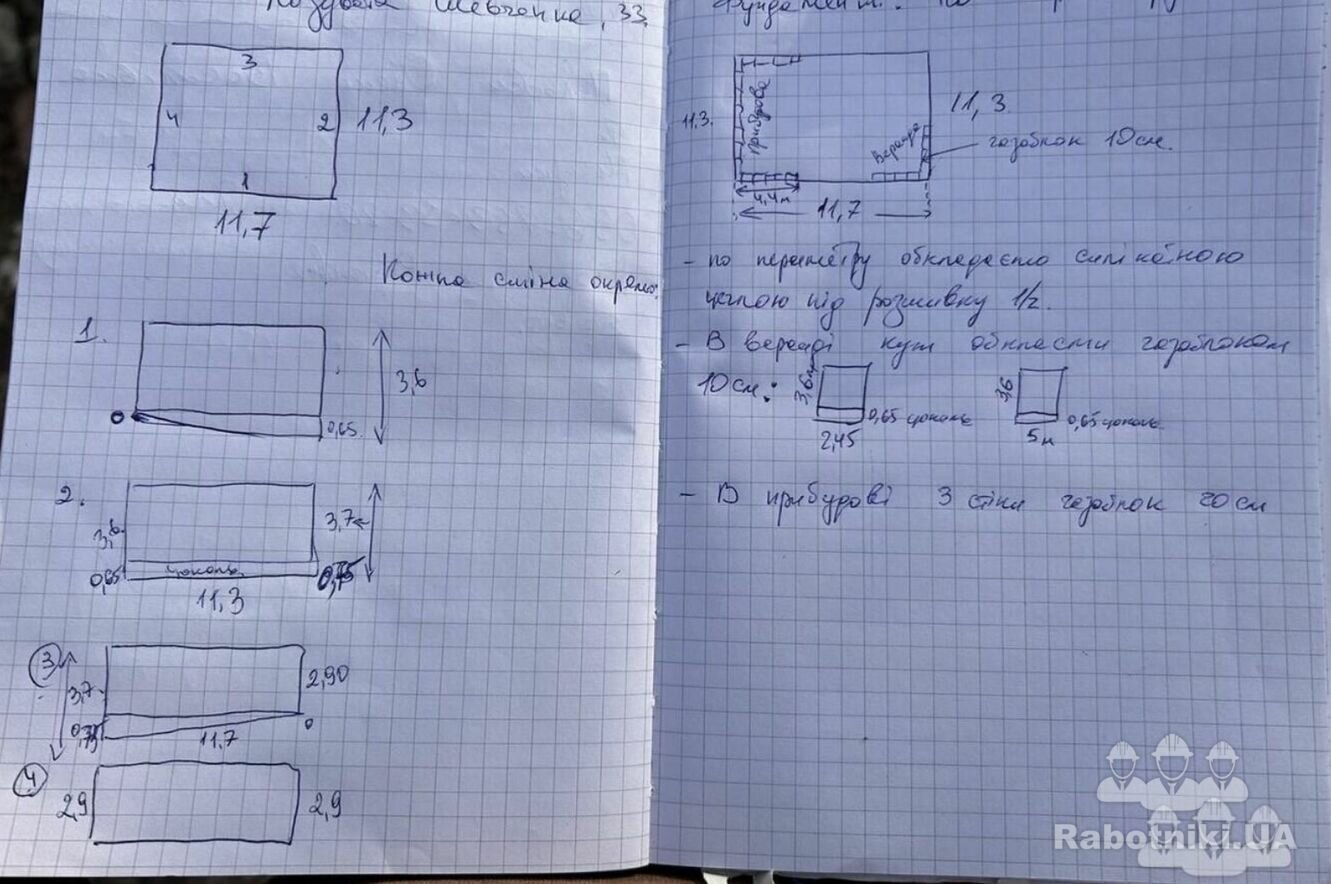 Шевченка, 33
3
4
2
11,3
1
11,7
Кожна стіна окремо:
1.
3,6
0
0,65
2.
3,6
3,7
0,65
цоколь
0,75
11,3
3
3,7
2,90
0
11,7
4
2,9
2,9
Фундамент:
11,3.
Прибудова
11,3.
Веранда
газоблок 10см.
4,4м
11,7
- по периметру обкладаємо силікатною
цеглою під розшивку 1/2.
- В веранді кут обкласти газоблоком
10см:
3,6м
0,65 цоколь
2,45
3,6
0,65 цоколь
5м
- В прибудові 3 стіни газоблок 20см
Rabotniki.UA